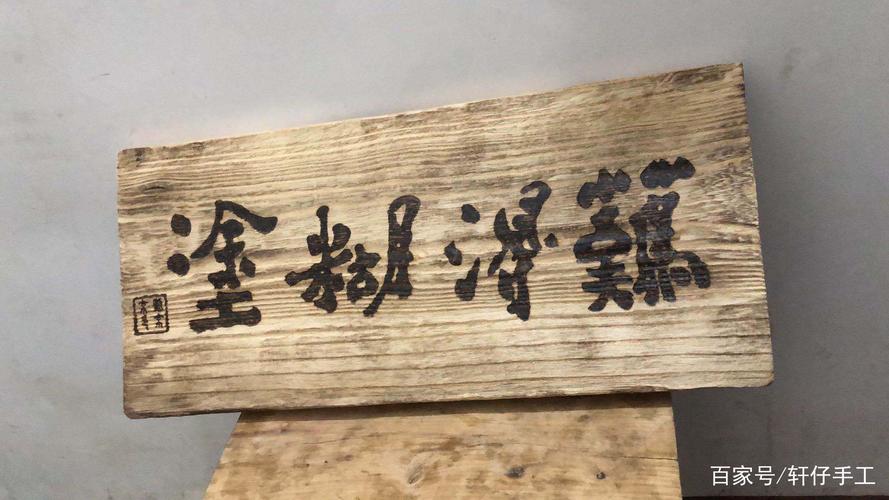 難淂糊塗
百家号/轩仔手工